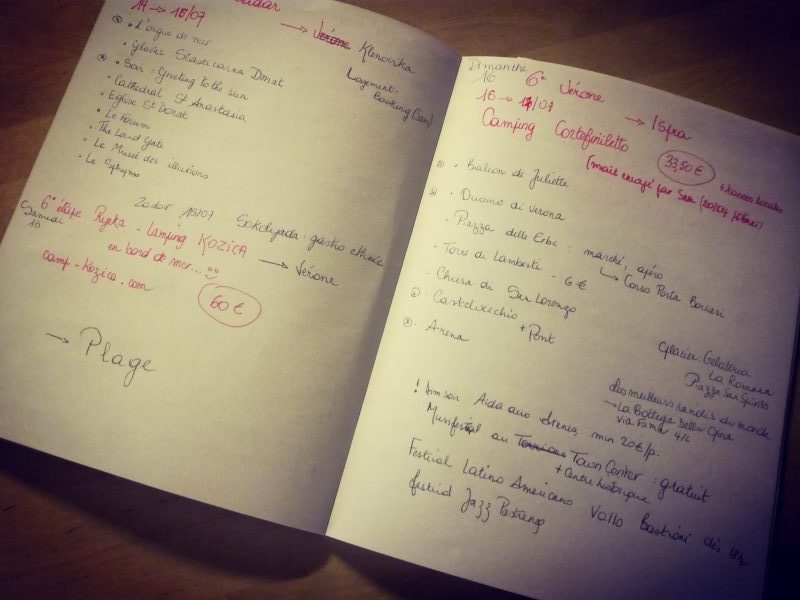 14 → 15/07
→ Vérone Klenovika
Logement:
Booking (Sam)
• L'orgue de mer
• Glacier Slasticarna Donat
• Soir: Greeting to the sun
• Cathédral St Anastasia
• Eglise St Donat
• Le Forum
• The Land Gate
• Le Musée des illusions
• Le
Zadar 15/07 Sokolijada: gastro ethnic
6° étape Rijeka - Camping KOZICA → Vérone
Samedi
15
en bord de mer...
camp-kozica.com
60€
→ Plage
Dimanche
16
6° Vérone
16 → 17/07 → Ispra
Camping Cortefiniletto
33,50€
(mail envoyé par Sam (20/04
• Balcon de Juliette
• Duomo di Verona
• Piazza delle Erbe: marché, apéro
↳ Corso Porta Borsari
• Torre di Lamberti - 6€
• Chiesa di San Lorenzo
• Castelvecchio + Pont
• Arena
Glacier Gelateria
La Romana
Piazza San Spirito
des meilleurs sandis du monde
→ La Bottega Della Gina
Via Fama 4/c
! Aida aux Arena, min 20€/p.
au Town Center: gratuit
+ Centre historique
Festival Latino Americano Vallo Bastioni dès 18h
festival Jazz Pastrengo